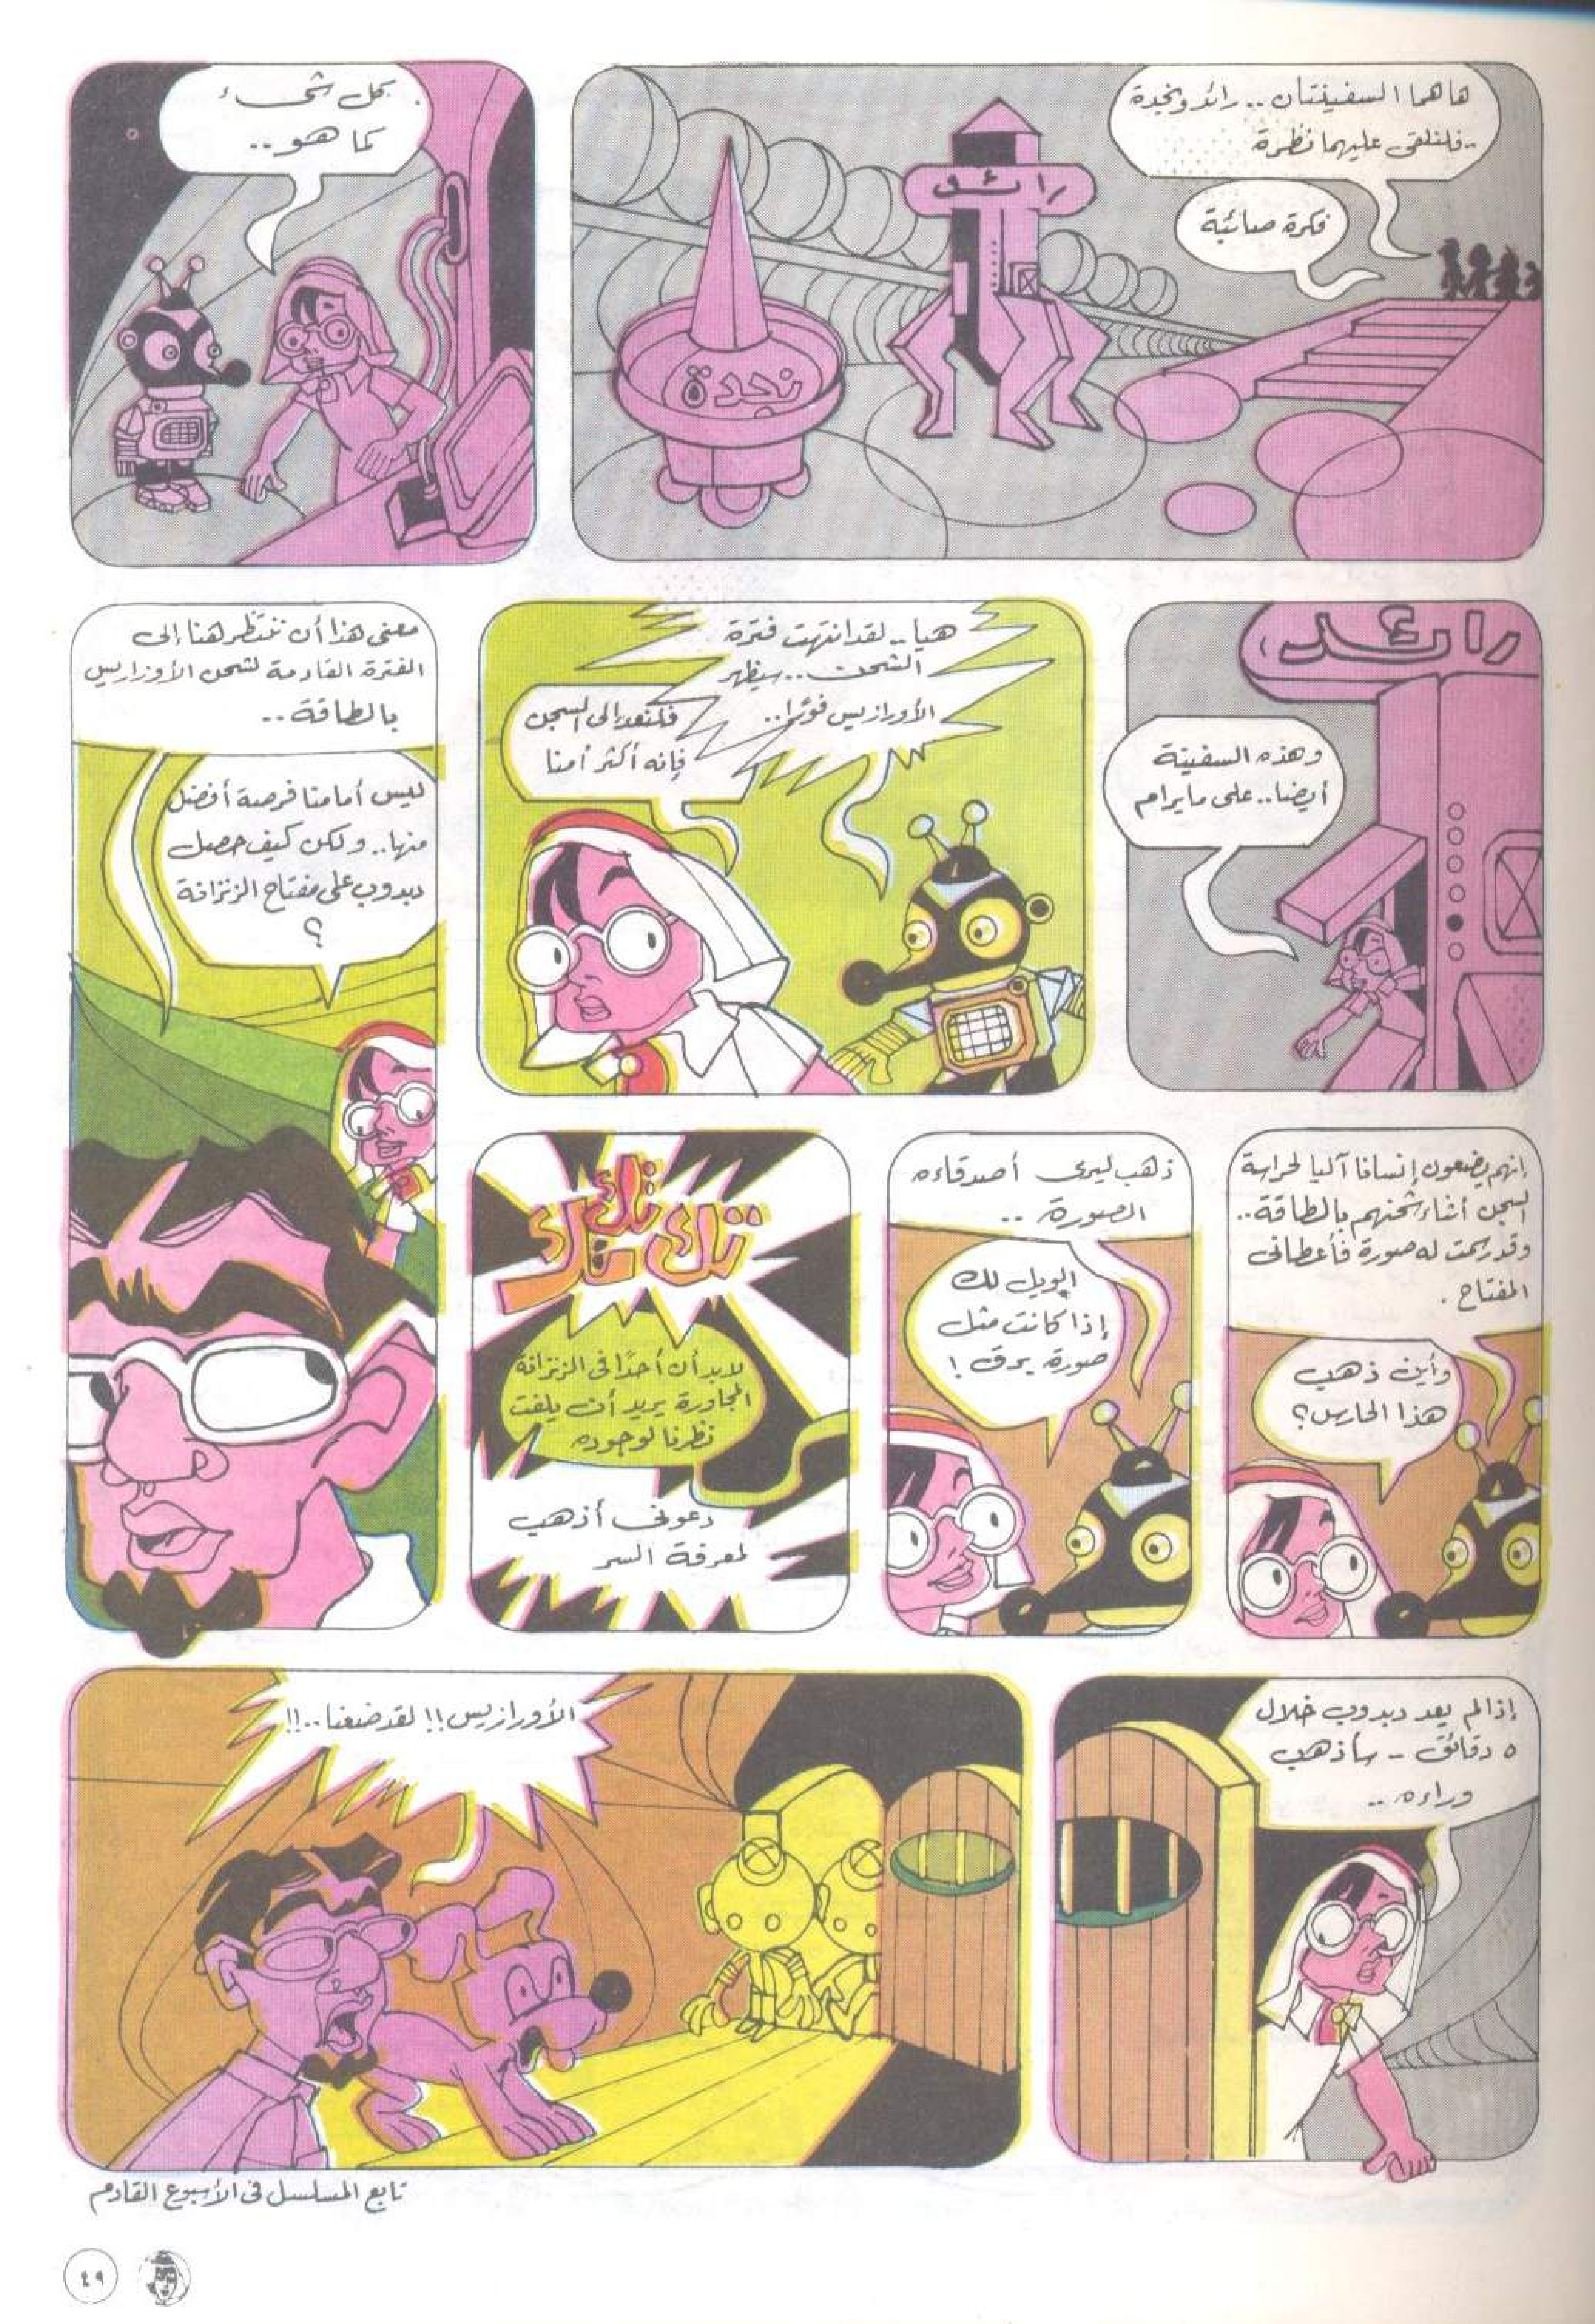 ها هما السفينتان .. رائد ونجدة
.. فلنلقى عليهما نظرة
فكرة صائبة
رائد
نجدة
كل شىء
كما هو ..
رائد
وهذه السفينة
أيضا .. على ما يرام
هيا .. لقد انتهت فترة
الشحن .. سيظهر
الأورازيس فورًا ..
فلنعد إلى السجن
فإنه أكثر أمنا
معنى هذا أن ننتظر هنا إلى
الفترة القادمة لشحن الأوزاريس
بالطاقة ..
ليس أمامنا فرصة أفضل
منها .. ولكن كيف حصل
دبدوب على مفتاح الزنزانة
؟
إنهم يضعون إنسانا آليا لحراسة
السجن أثناء شحنهم بالطاقة ..
وقد رسمت له صورة فأعطانى
المفتاح .
وأين ذهب
هذا الحارس؟
ذهب ليرى أصدقاءه
الصورة ..
الويل لك
إذا كانت مثل
صورة برق !
تك تك تك تك
لابد أن أحدًا فى الزنزانة
المجاورة يريد أن يلفت
نظرنا لوجوده
دعونى أذهب
لمعرفة السر
إذا لم يعد دبدوب خلال
٥ دقائق - سأذهب
وراءه ..
الأورازيس !! لقد ضعنا ..!!
تابع المسلسل فى الأسبوع القادم
٤٩